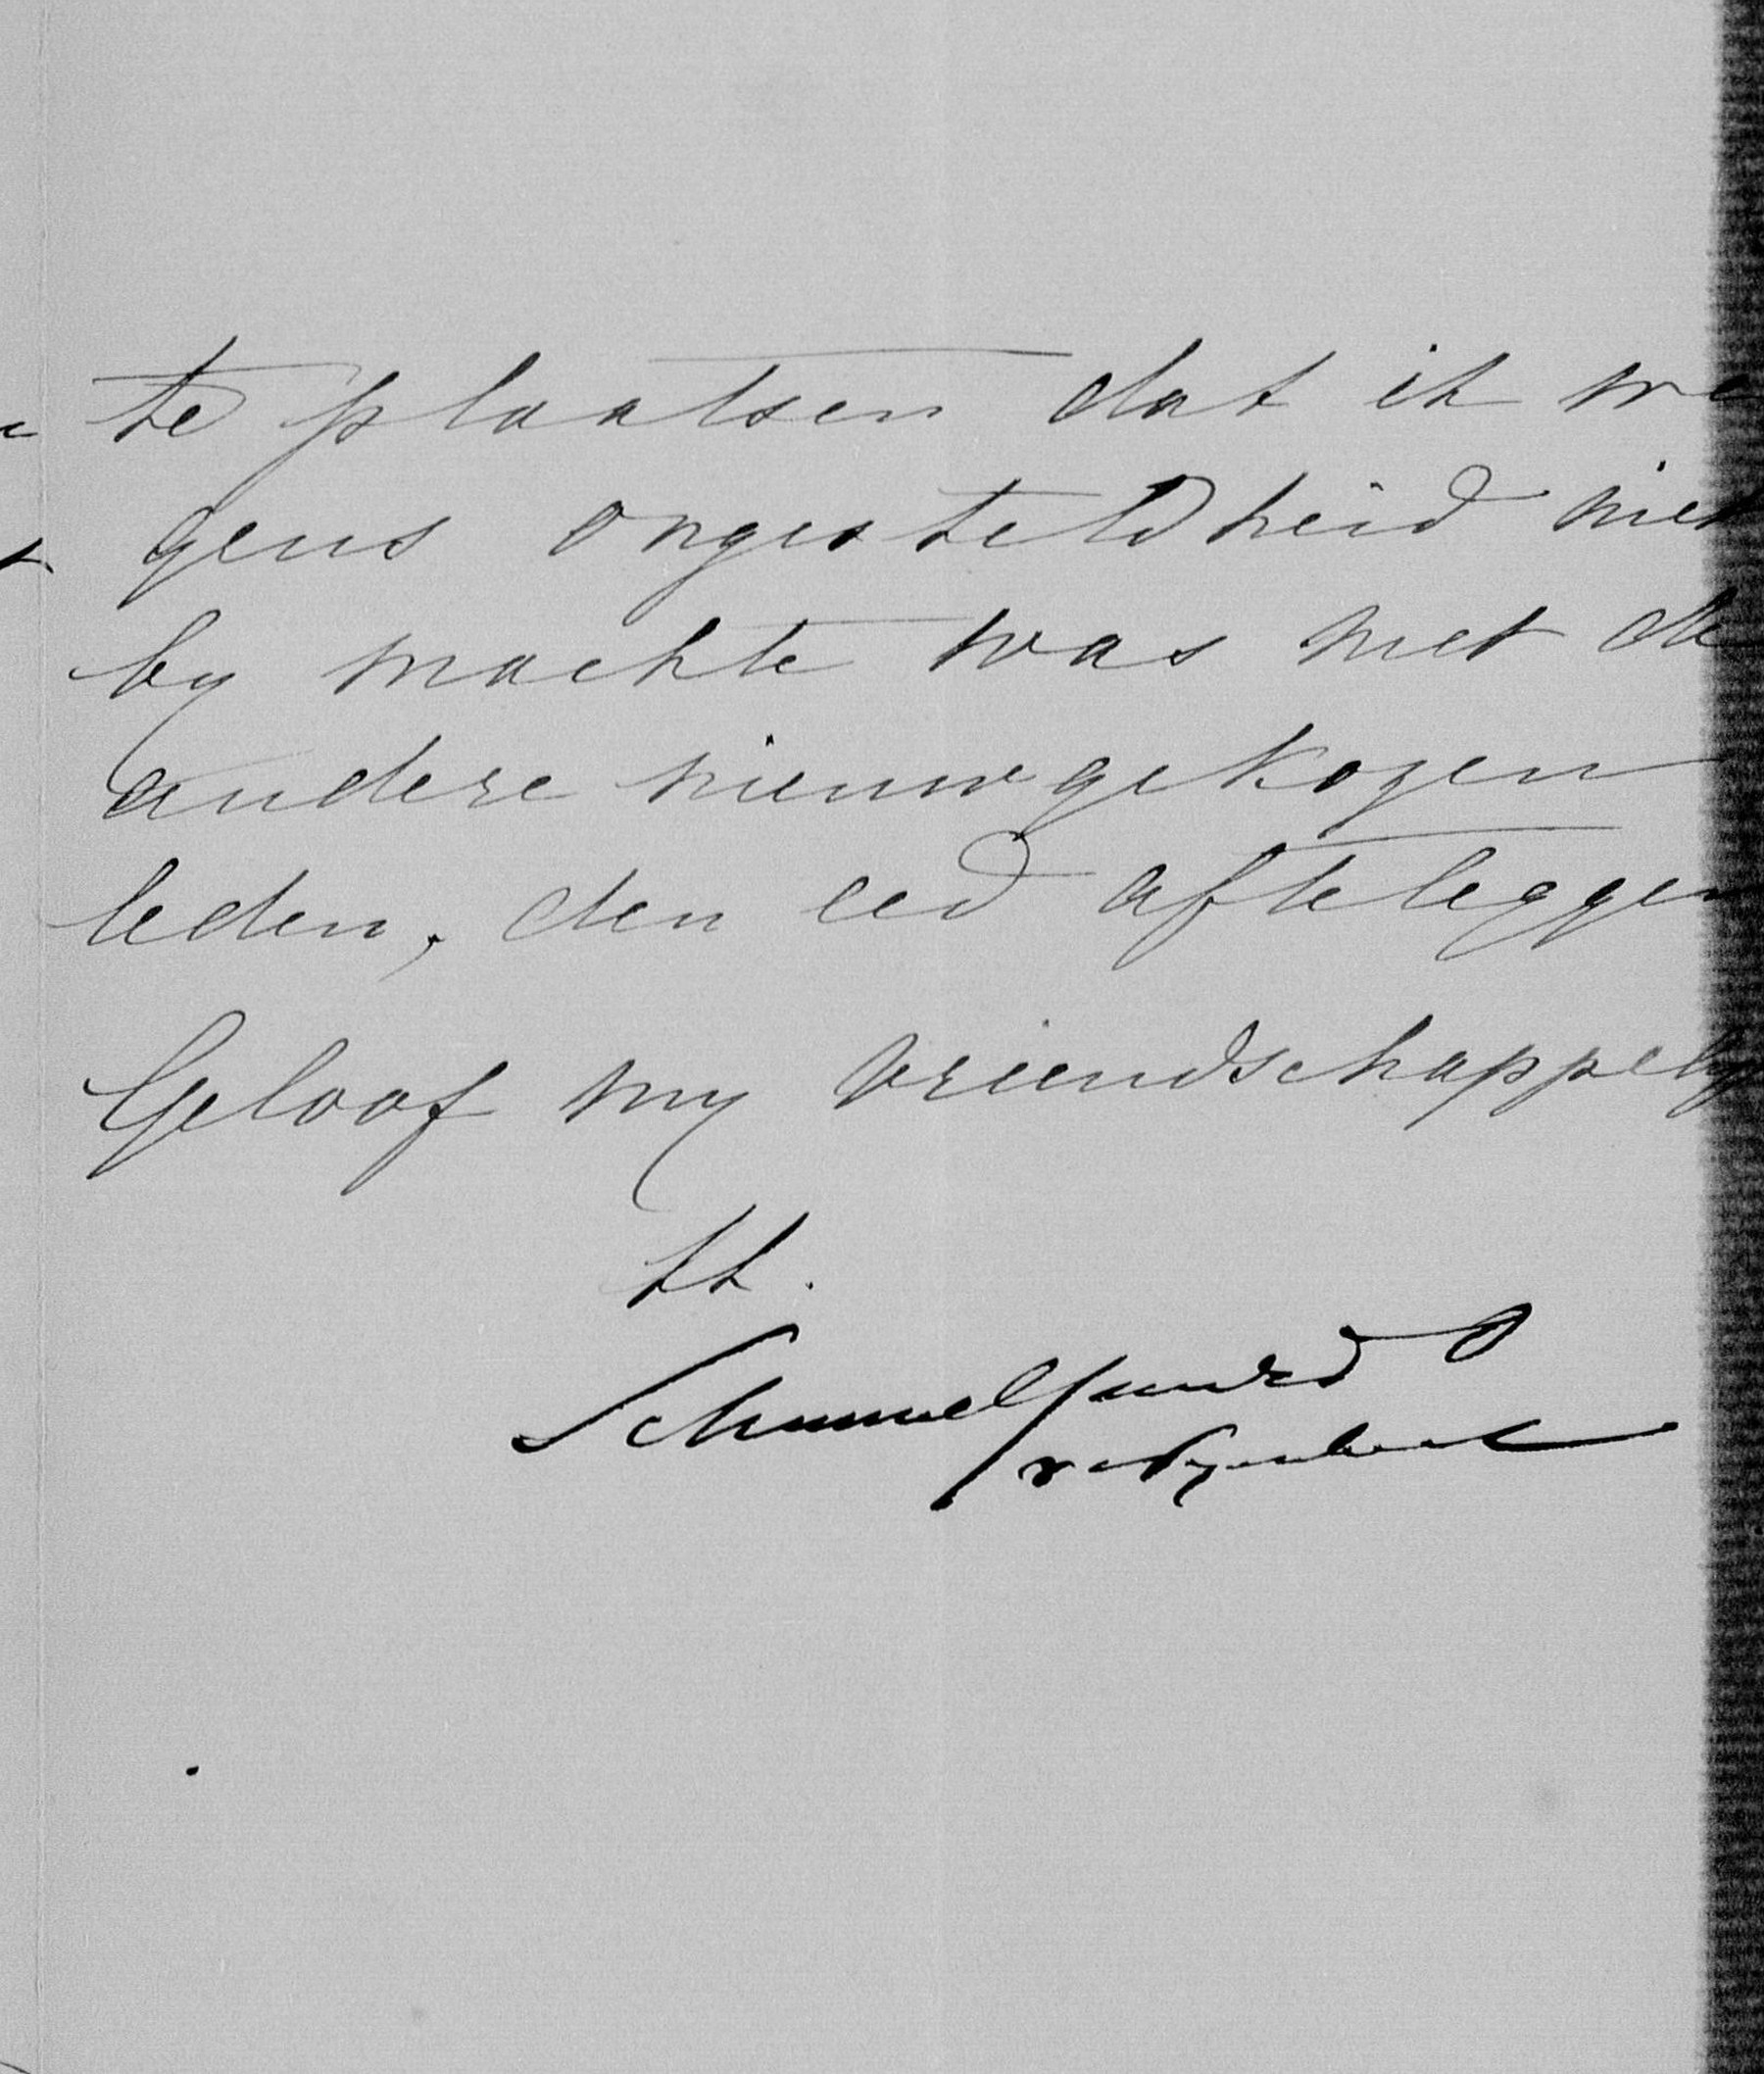 te plaatsen dat ik we
gens ongesteldheid niet
by machte was met de
andere nieuwgekozen
leden, den eed afteleggen
Geloof my vriendschappely
tt.
Schimmelpenninck
v d Nyenbeek